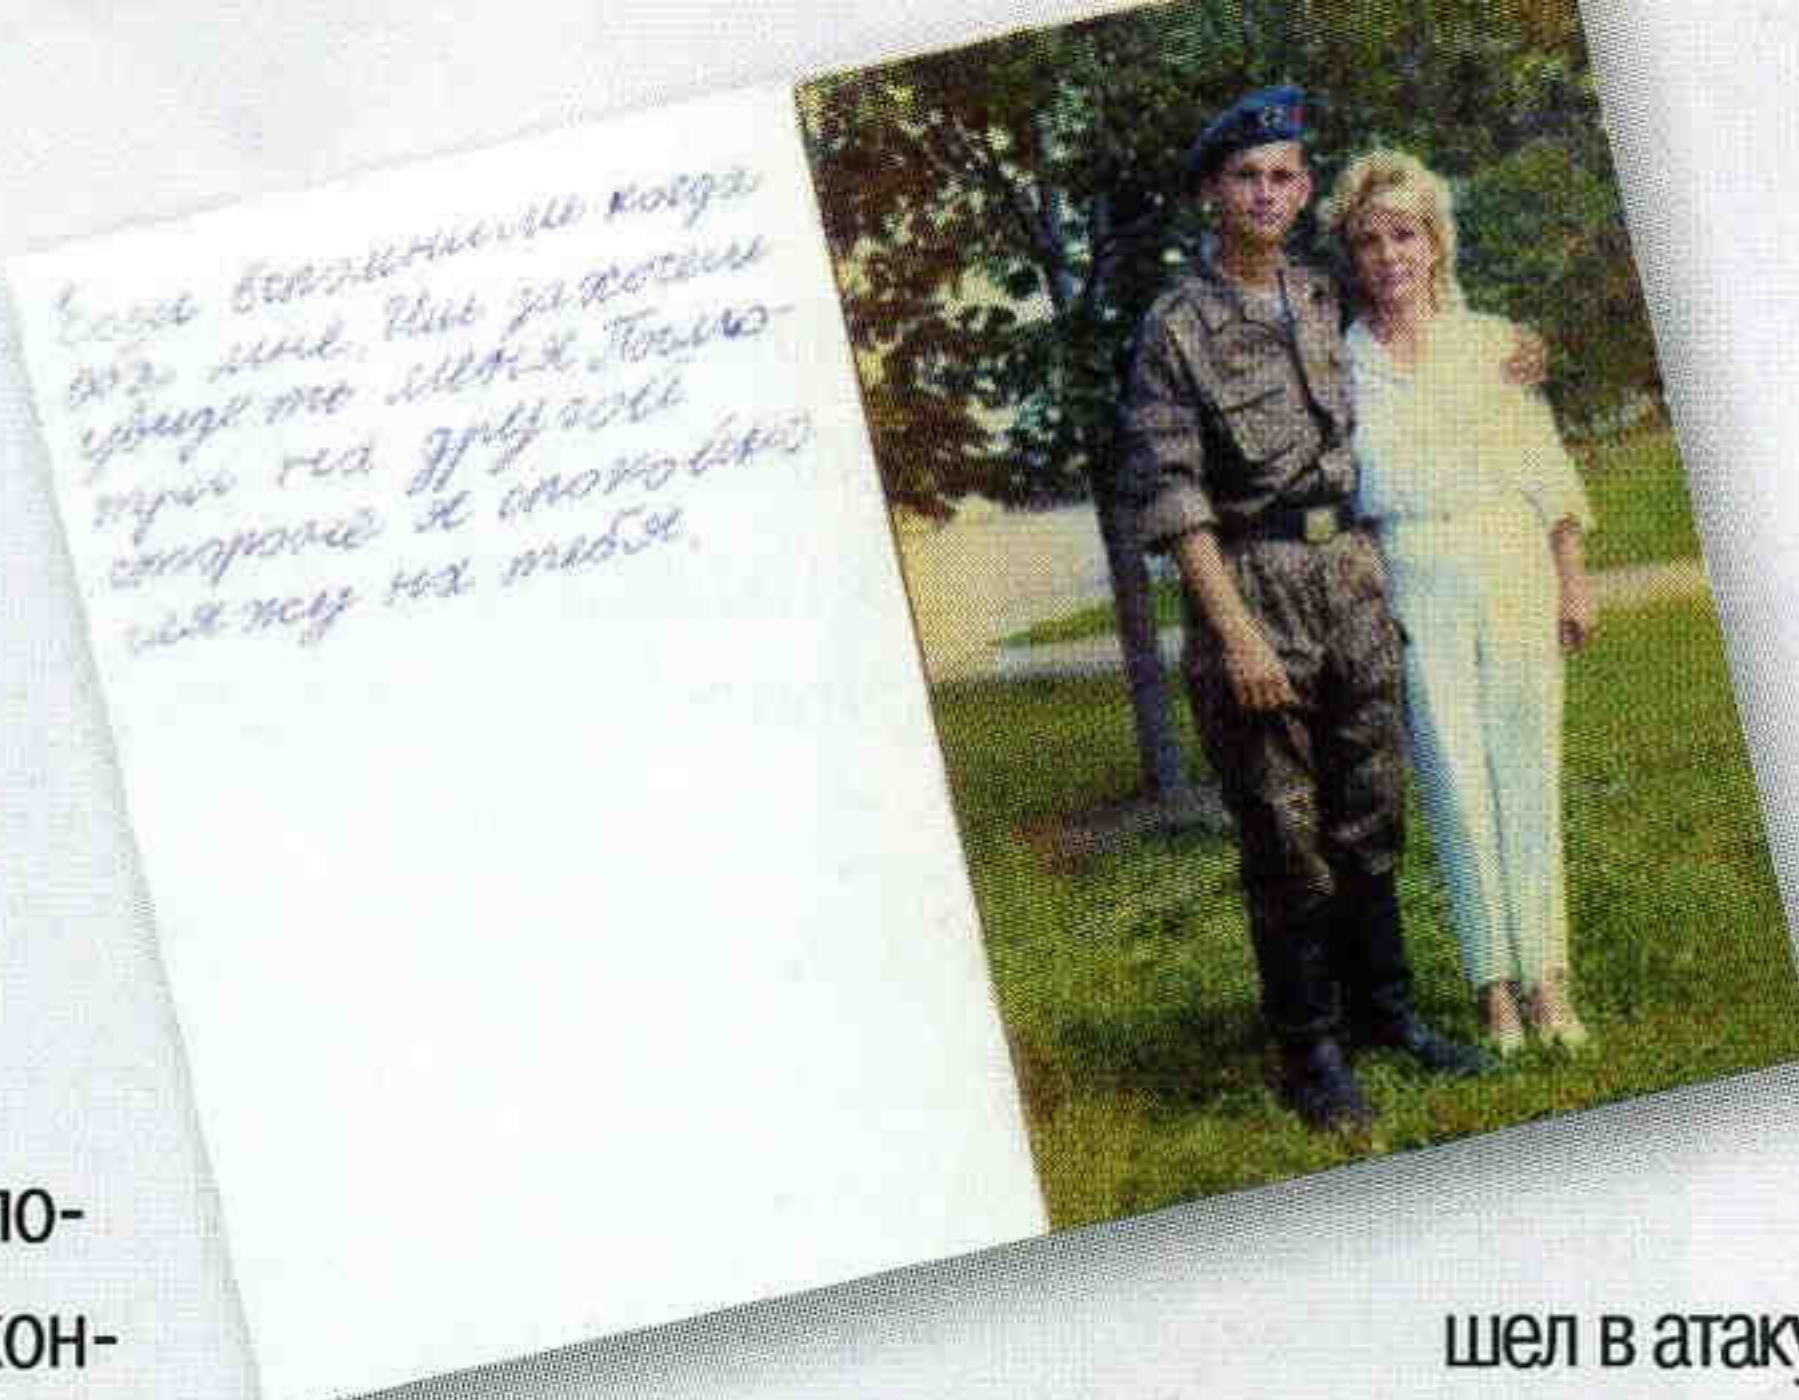 Если вспомнишь когда
обо мне. Или захочешь
увидеть меня Посмо-
три на другой
стороне я спокойно
гляжу на тебя.
ло-
кон-
шел в атаку